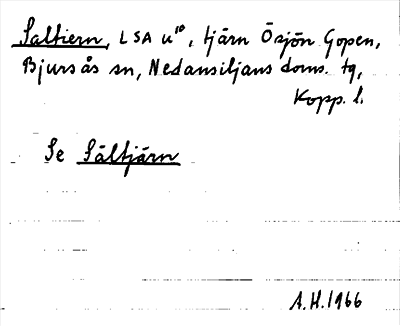 Saltiern, LSA u¹⁰, tjärn Ö sjön Gopen,
Bjursås sn, Nedansiljans doms. tg,
Kopp. l.
Se Sältjärn
A.H. 1966